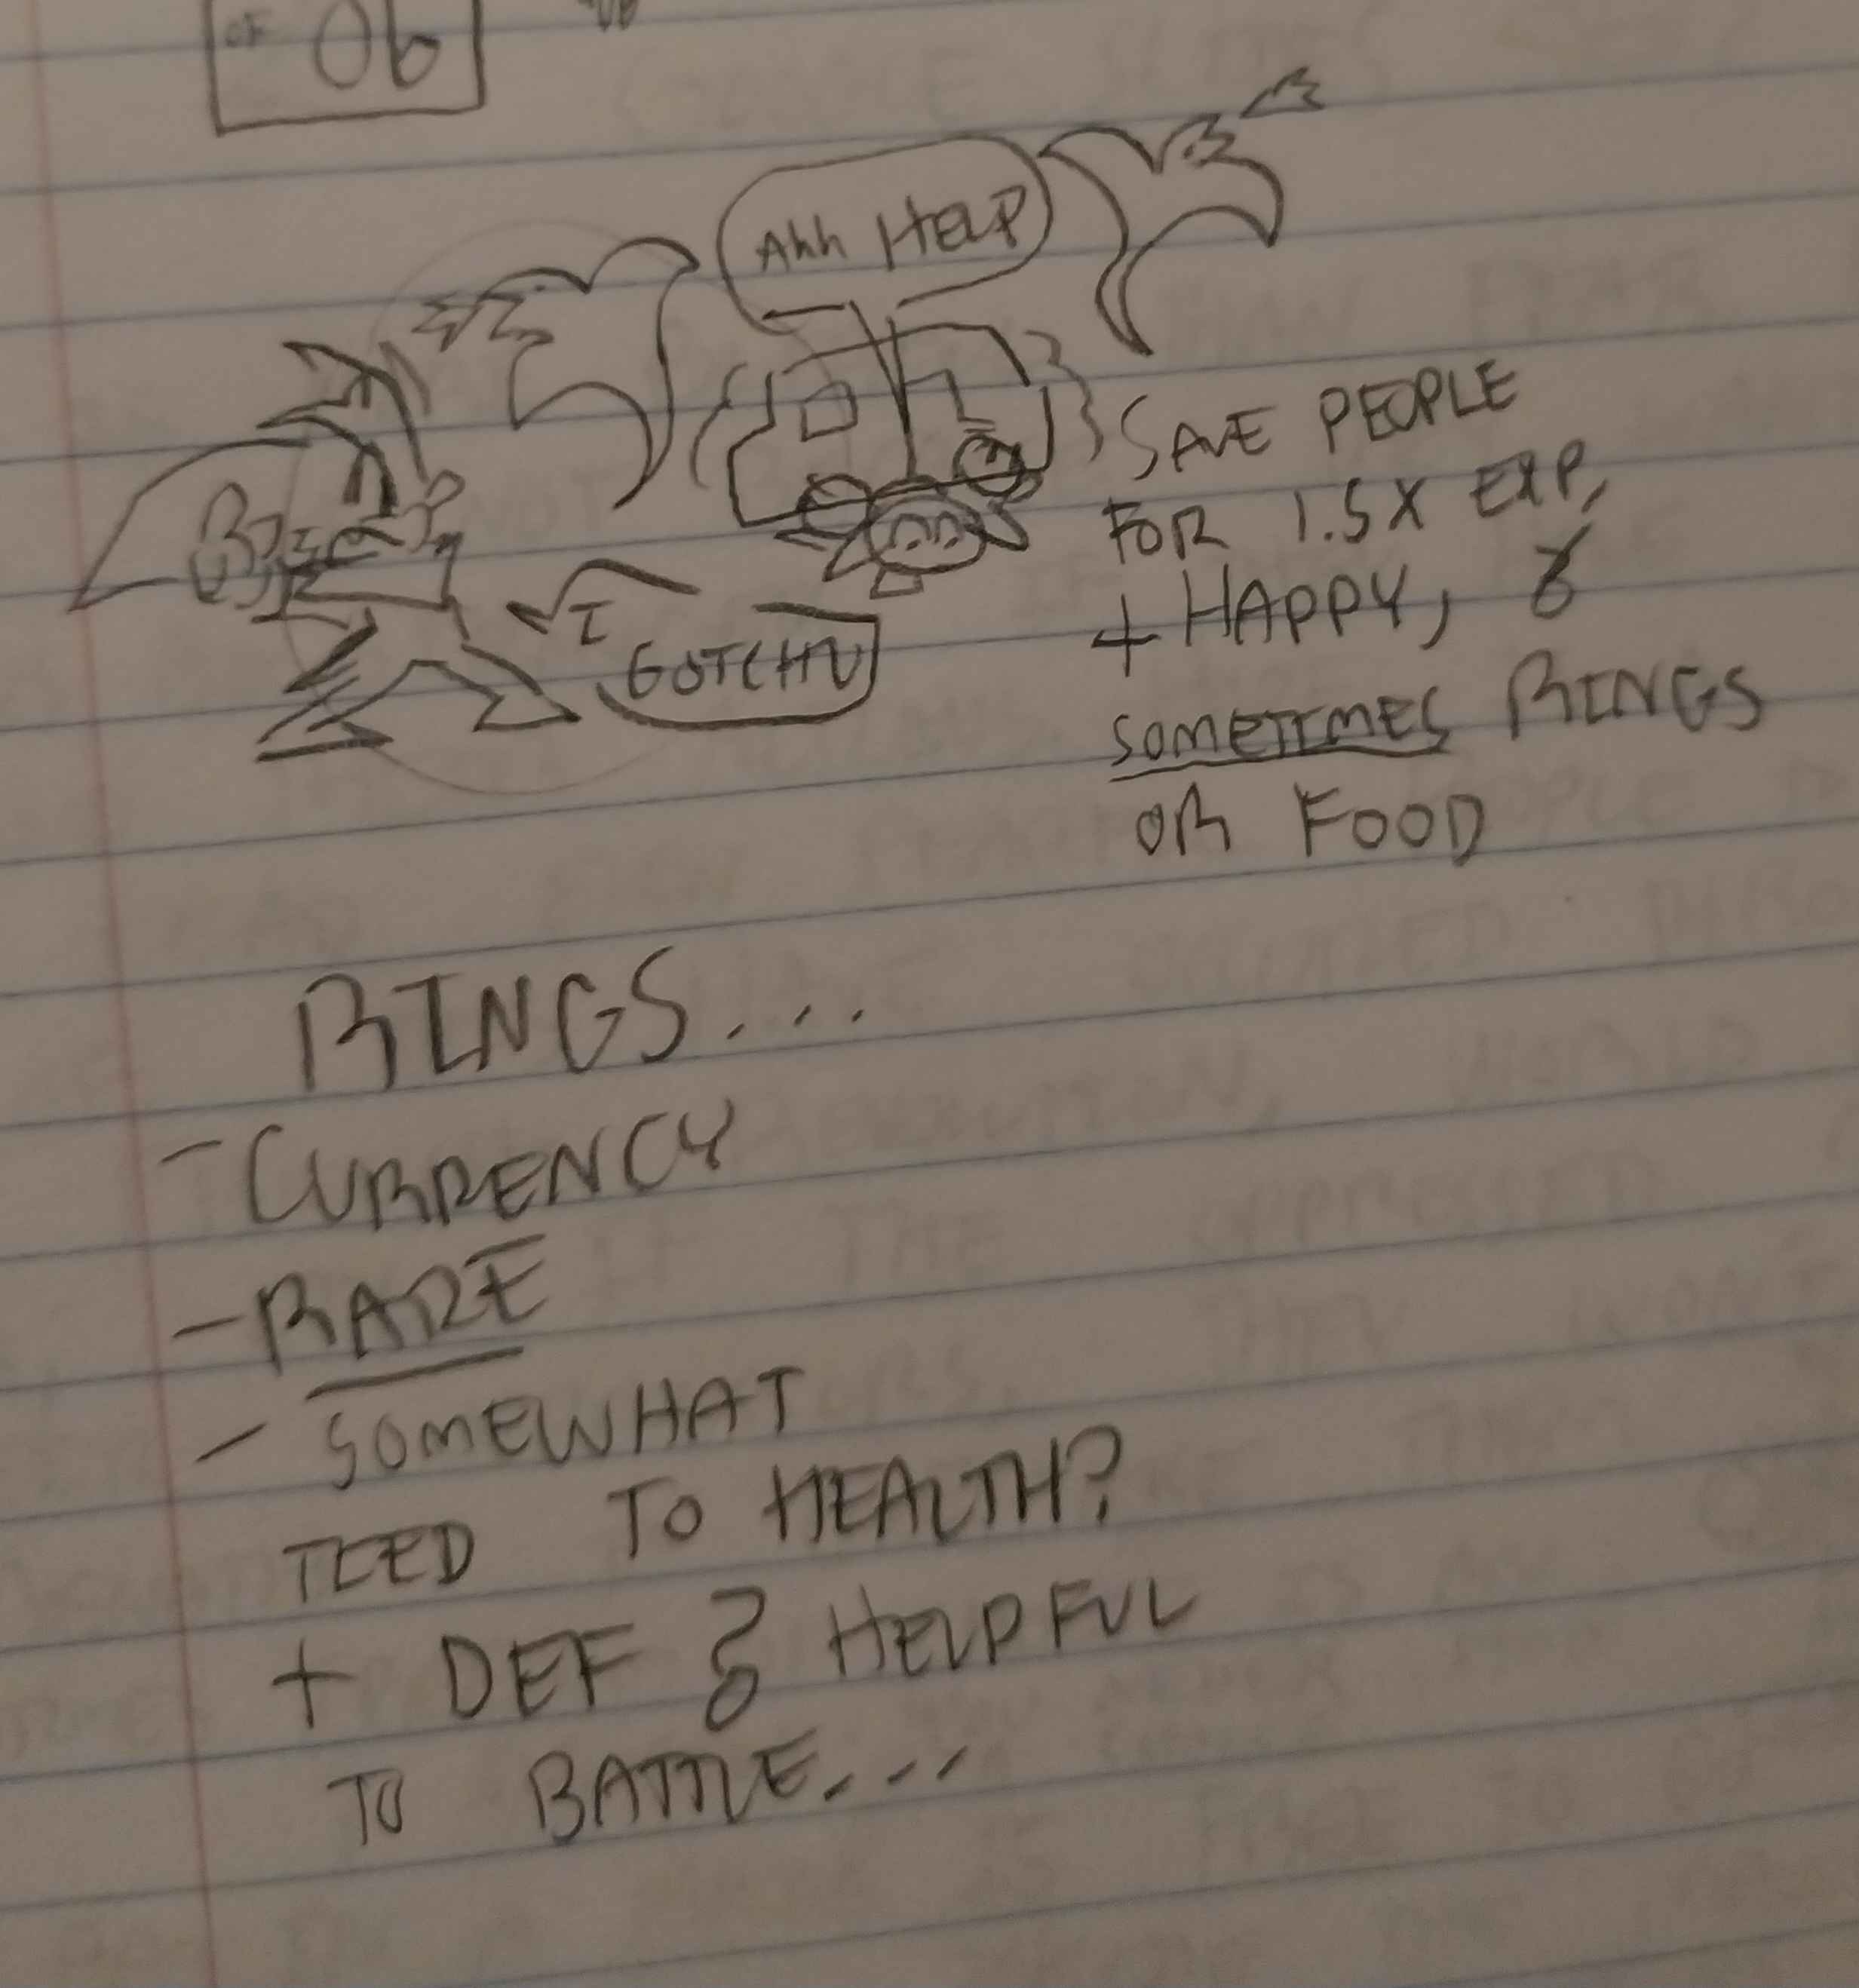 OF 06
Ahh HELP
SAVE PEOPLE
FOR 1.5X EXP,
+ HAPPY, &
SOMETIMES RINGS
OR FOOD
I
GOTCHU
RINGS....
- CURRENCY
- RARE
- SOMEWHAT
TIED TO HEALTH?
+ DEF & HELPFUL
TO BATTLE....